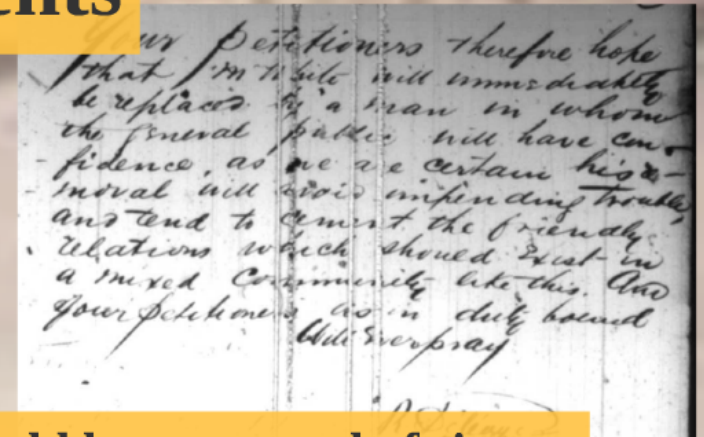 ents
Your petitioners therefore hope
that Mr White will immediately
be replaced by a man in whom
the general public will have con-
fidence, as we are certain his re-
moval will avoid impending trouble,
and tend to cement the friendly
relations which should exist in
a mixed Community like this. And
your petitioners as in duty bound
Will Ever pray